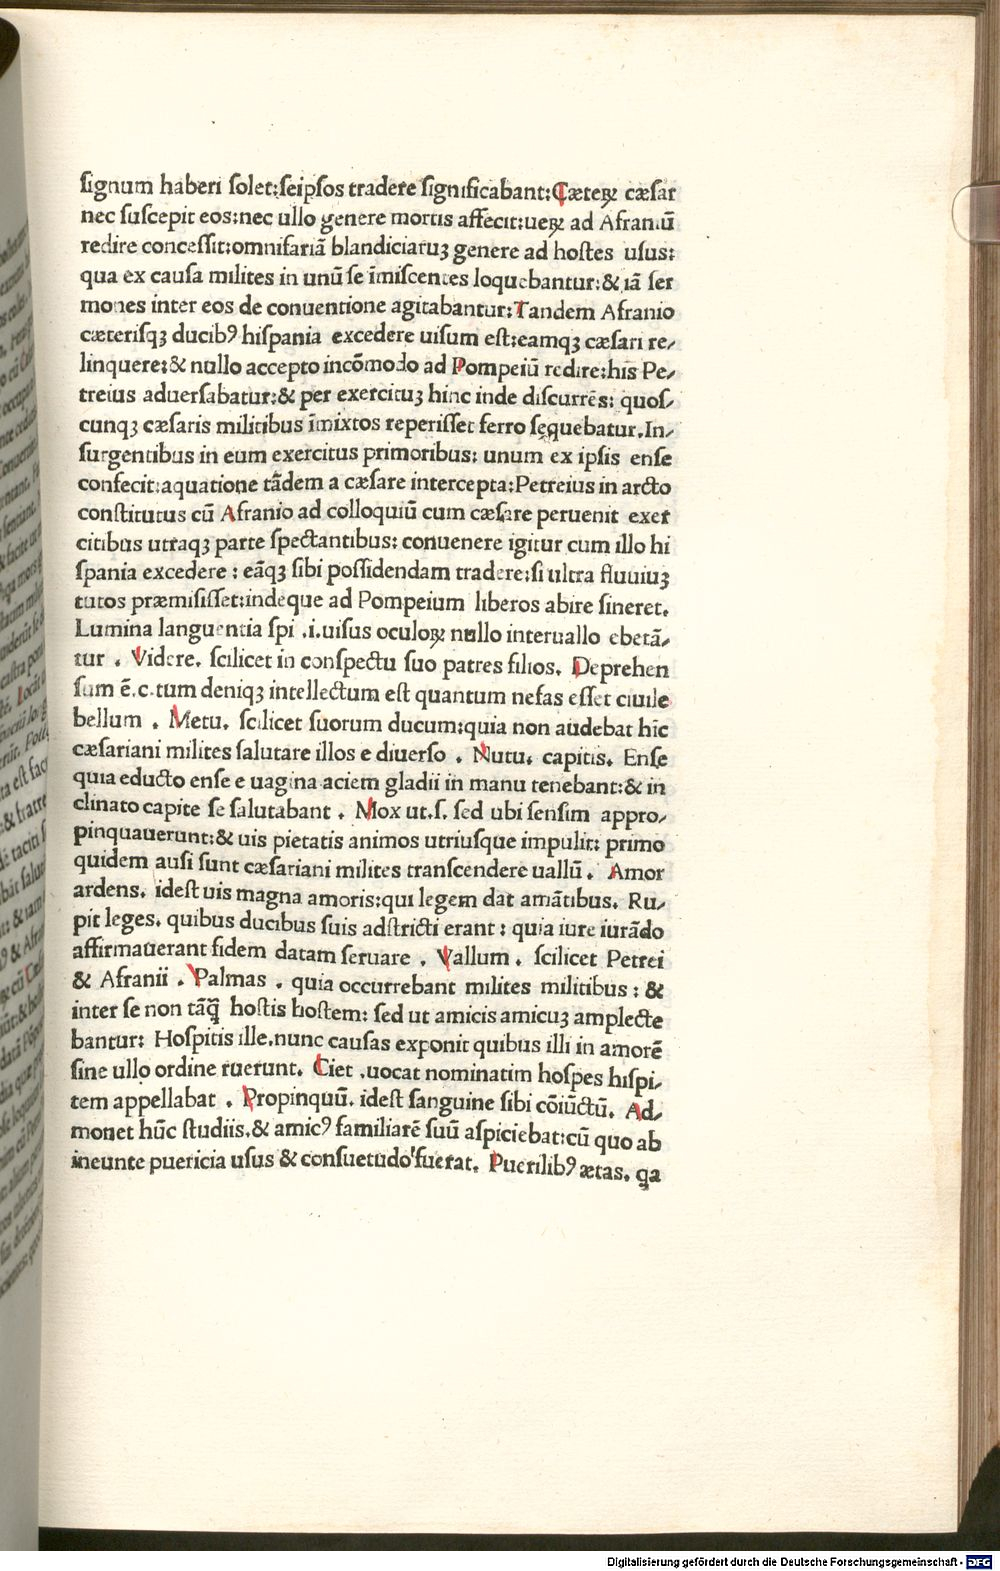 ſignum haberi ſolet:ſeipſos tradere ſignificabant:Cæteꝝ cæſar
nec ſuſcepit eos:nec ullo genere mortis affecit:ueꝝ ad Afraniū
redire conceſſit:omnifariā blandiciaruꝫ genere ad hoſtes uſus:
qua ex cauſa milites in unū ſe īmiſcentes loquebantur:& iā ſer
mones inter eos de conuentione agitabantur:Tandem Afranio
cæteriſqꝫ ducibꝰ hiſpania excedere uiſum eſt:eamqꝫ cæſari re⸗
linquere:& nullo accepto incōmodo ad Pompeiū redire:his Pe⸗
treius aduerſabatur:& per exercituꝫ hinc inde diſcurrēs: quoſ⸗
cunqꝫ cæſaris militibus īmixtos reperiſſet ferro ſequebatur.In⸗
ſurgentibus in eum exercitus primoribus: unum ex ipſis enſe
confecit:aquatione tādem a cæſare intercepta:Petreius in arcto
conſtitutus cū Afranio ad colloquiū cum cæſare peruenit exer
citibus utraqꝫ parte ſpectantibus: conuenere igitur cum illo hi
ſpania excedere : eāqꝫ ſibi poſſidendam tradere:ſi ultra fluuiuꝫ
tutos præmiſiſſet:indeque ad Pompeium liberos abire ſineret.
Lumina languentia ſpi .i.uiſus oculoꝝ nullo interuallo ebetā⸗
tur . Videre. ſcilicet in conſpectu ſuo patres filios. Deprehen
ſum ē.c.tum deniqꝫ intellectum eſt quantum nefas eſſet ciuile
bellum . Metu. ſcilicet ſuorum ducum:quia non audebat hīc
cæſariani milites ſalutare illos e diuerſo . Nutu. capitis. Enſe
quia educto enſe e uagina aciem gladii in manu tenebant:& in
clinato capite ſe ſalutabant . Mox ut.ſ. ſed ubi ſenſim appro⸗
pinquauerunt:& uis pietatis animos utriuſque impulit: primo
quidem auſi ſunt cæſariani milites tranſcendere uallū . Amor
ardens. ideſt uis magna amoris:qui legem dat amātibus. Ru⸗
pit leges. quibus ducibus ſuis adſtricti erant : quia iure iurādo
affirmauerant fidem datam ſeruare . Vallum . ſcilicet Petrei
& Afranii . Palmas . quia occurrebant milites militibus : &
inter ſe non tāq̄ hoſtis hoſtem: ſed ut amicis amicuꝫ amplecte
bantur: Hoſpitis ille.nunc cauſas exponit quibus illi in amorē
ſine ullo ordine ruerunt. Ciet .uocat nominatim hoſpes hiſpi⸗
tem appellabat . Propinquū. ideſt ſanguine ſibi cōiūctū. Ad⸗
monet hūc ſtudiis.& amicꝰ familiarē ſuū aſpiciebat:cū quo ab
ineunte puericia uſus & conſuetudo fuerat. Puerilibꝰ ætas. qa
Digitalisierung gefördert durch die Deutsche Forschungsgemeinschaft - DFG